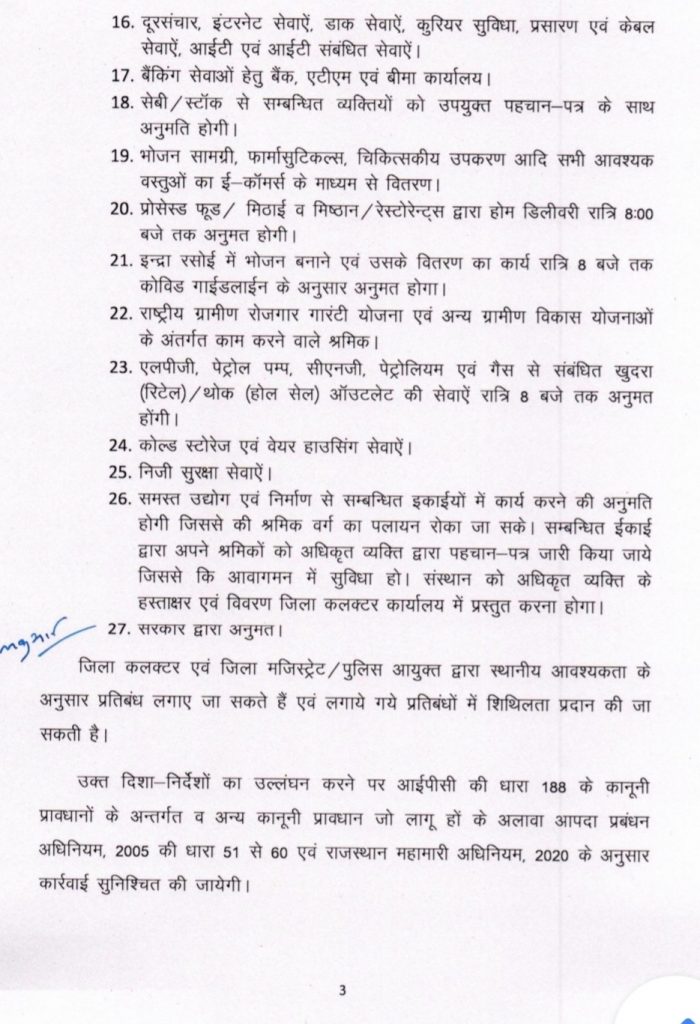 16. दूरसंचार, इंटरनेट सेवाऐं, डाक सेवाऐं, कुरियर सुविधा, प्रसारण एवं केबल
सेवाऐं, आईटी एवं आईटी संबंधित सेवाऐं।
17. बैंकिंग सेवाओं हेतु बैंक, एटीएम एवं बीमा कार्यालय।
18. सेबी/स्टॉक से सम्बन्धित व्यक्तियों को उपयुक्त पहचान–पत्र के साथ
अनुमति होगी।
19. भोजन सामग्री, फार्मासुटिकल्स, चिकित्सकीय उपकरण आदि सभी आवश्यक
वस्तुओं का ई–कॉमर्स के माध्यम से वितरण।
20. प्रोसेस्ड फूड/ मिठाई व मिष्ठान/रेस्टोरेन्ट्स द्वारा होम डिलीवरी रात्रि 8:00
बजे तक अनुमत होगी।
21. इन्द्रा रसोई में भोजन बनाने एवं उसके वितरण का कार्य रात्रि 8 बजे तक
कोविड गाईडलाईन के अनुसार अनुमत होगा।
22. राष्ट्रीय ग्रामीण रोजगार गारंटी योजना एवं अन्य ग्रामीण विकास योजनाओं
के अंतर्गत काम करने वाले श्रमिक।
23. एलपीजी, पेट्रोल पम्प, सीएनजी, पेट्रोलियम एवं गैस से संबंधित खुदरा
(रिटेल)/थोक (होल सेल) ऑउटलेट की सेवाऐं रात्रि 8 बजे तक अनुमत
होंगी।
24. कोल्ड स्टोरेज एवं वेयर हाउसिंग सेवाऐं।
25. निजी सुरक्षा सेवाऐं।
26. समस्त उद्योग एवं निर्माण से सम्बन्धित इकाईयों में कार्य करने की अनुमति
होगी जिससे की श्रमिक वर्ग का पलायन रोका जा सके। सम्बन्धित ईकाई
द्वारा अपने श्रमिकों को अधिकृत व्यक्ति द्वारा पहचान–पत्र जारी किया जाये
जिससे कि आवागमन में सुविधा हो। संस्थान को अधिकृत व्यक्ति के
हस्ताक्षर एवं विवरण जिला कलक्टर कार्यालय में प्रस्तुत करना होगा।
27. सरकार द्वारा अनुमत।
जिला कलक्टर एवं जिला मजिस्ट्रेट/पुलिस आयुक्त द्वारा स्थानीय आवश्यकता के
अनुसार प्रतिबंध लगाए जा सकते हैं एवं लगाये गये प्रतिबंधों में शिथिलता प्रदान की जा
सकती है।
उक्त दिशा–निर्देशों का उल्लंघन करने पर आईपीसी की धारा 188 के कानूनी
प्रावधानों के अन्तर्गत व अन्य कानूनी प्रावधान जो लागू हों के अलावा आपदा प्रबंधन
अधिनियम, 2005 की धारा 51 से 60 एवं राजस्थान महामारी अधिनियम, 2020 के अनुसार
कार्रवाई सुनिश्चित की जायेगी।
3